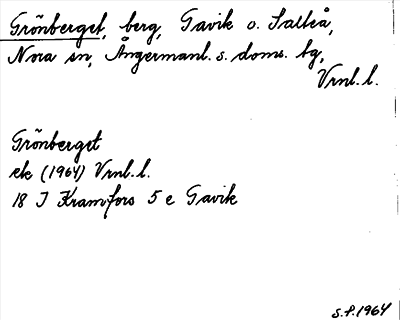 Grönberget, berg, Gavik o. Salteå,
Nora sn, Ångermanl. s. doms. bg,
Vrnl. l.
Grönberget
ek (1964) Vrnl. l.
18 J Kramfors 5 e Gavik
S.P. 1964